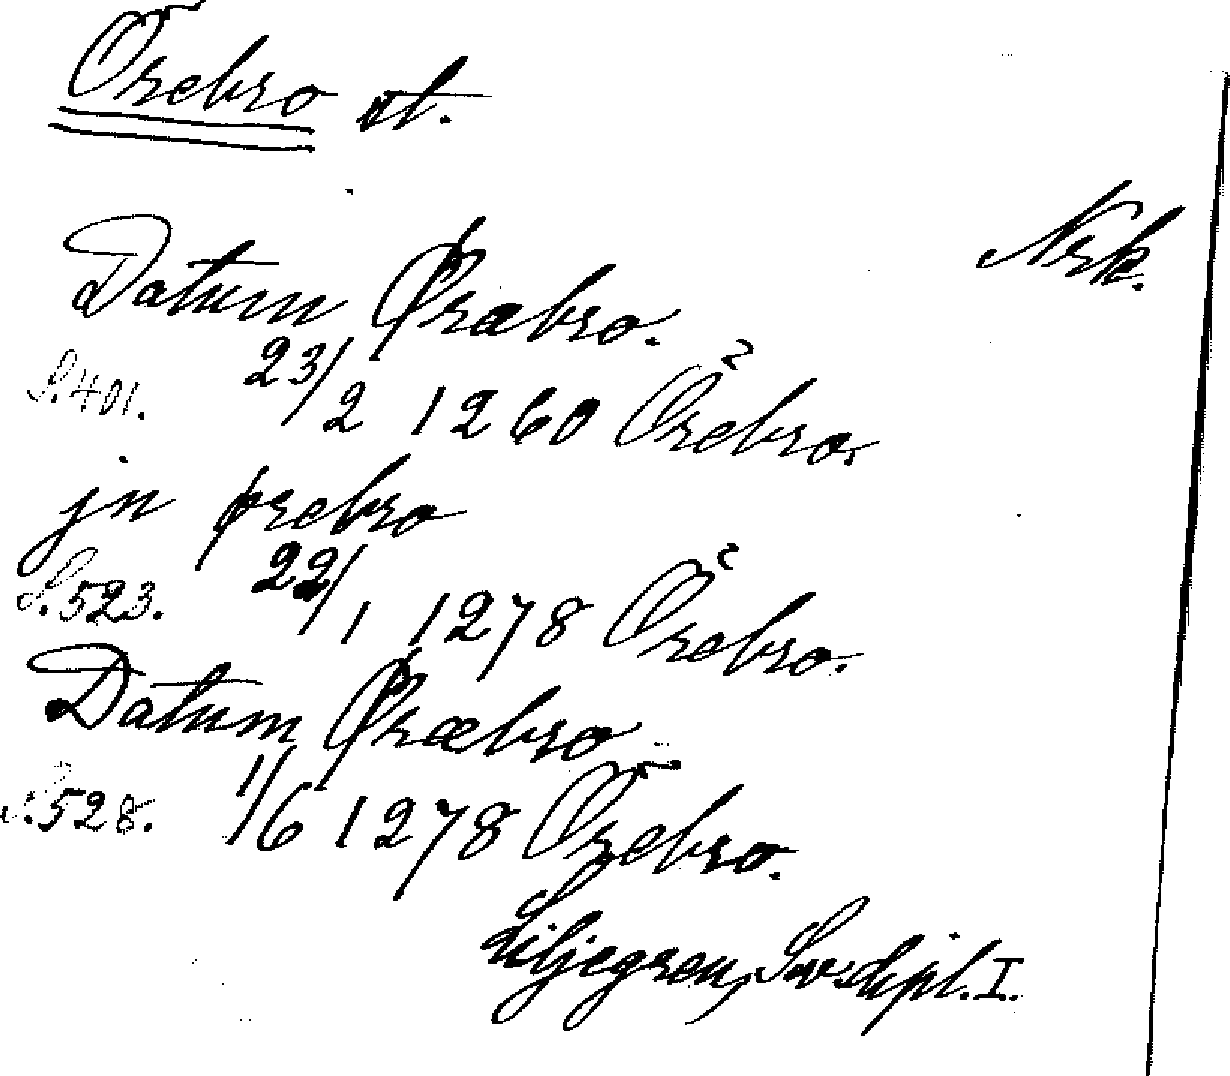 Örebro st.
Nrk.
Datum Øræbro.
S.401. 23/2 1260 Örebro.
jn ørebro
S.523. 22/1 1278 Örebro.
Datum Øræbro
S.528. 1/6 1278 Örebro.
Liljegren, Sv. dipl. I.